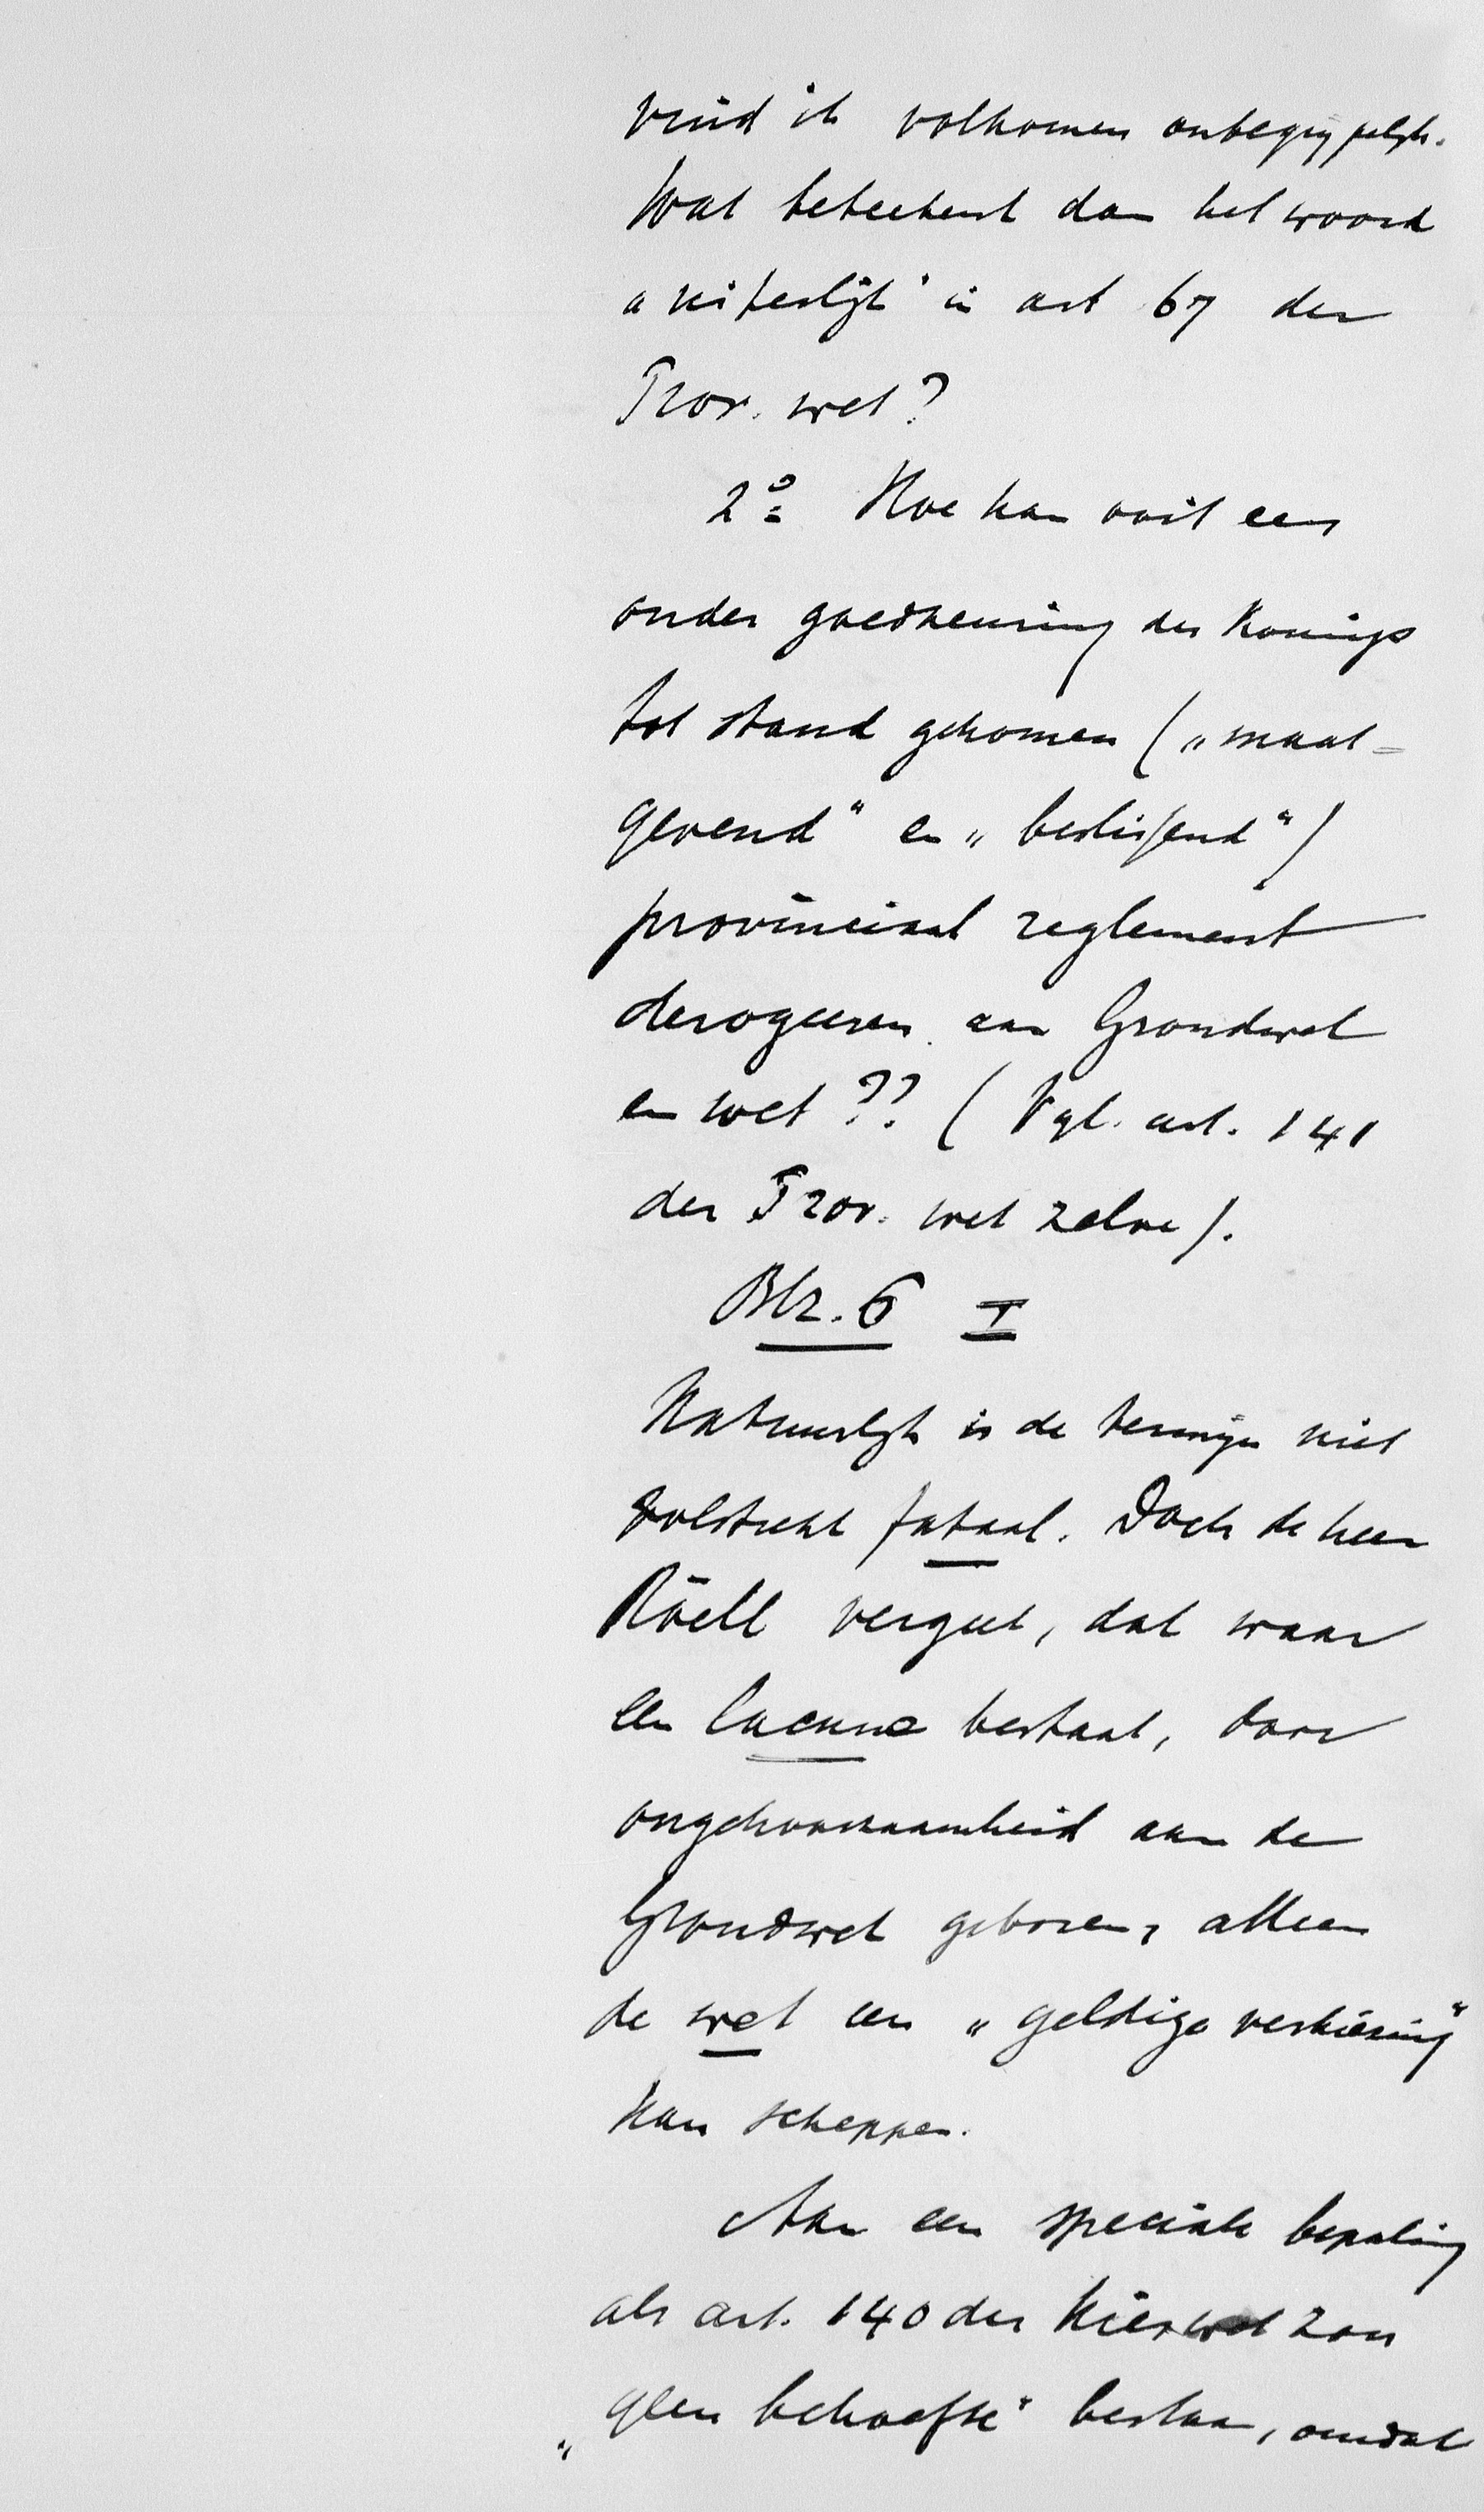 vind ik volkomen onbegrijpelijk.
Wat beteekent dan het woord
„uiterlijk" in art 67 der
Prov. wet?
2º Hoe kan ooit een
onder goedkeuring des Konings
tot stand gekomen („maat=
gevend" en „beslissend")
provinciaal reglement
derogeeren aan Grondwet
en wet?? (Vgl. art. 141
der Prov. wet zelve).
Blz. 6 I
Natuurlijk is de termijn niet
volstrekt fataal. Doch de heer
Röell vergeet, dat waar
een lacune bestaat, door
ongehoorzaamheid aan de
Grondwet geboren, alleen
de wet een „geldige verkiezing"
kan scheppen.
Aan een speciale bepaling
als art. 140 der Kieswet zou
„geen behoefte" bestaan, omdat